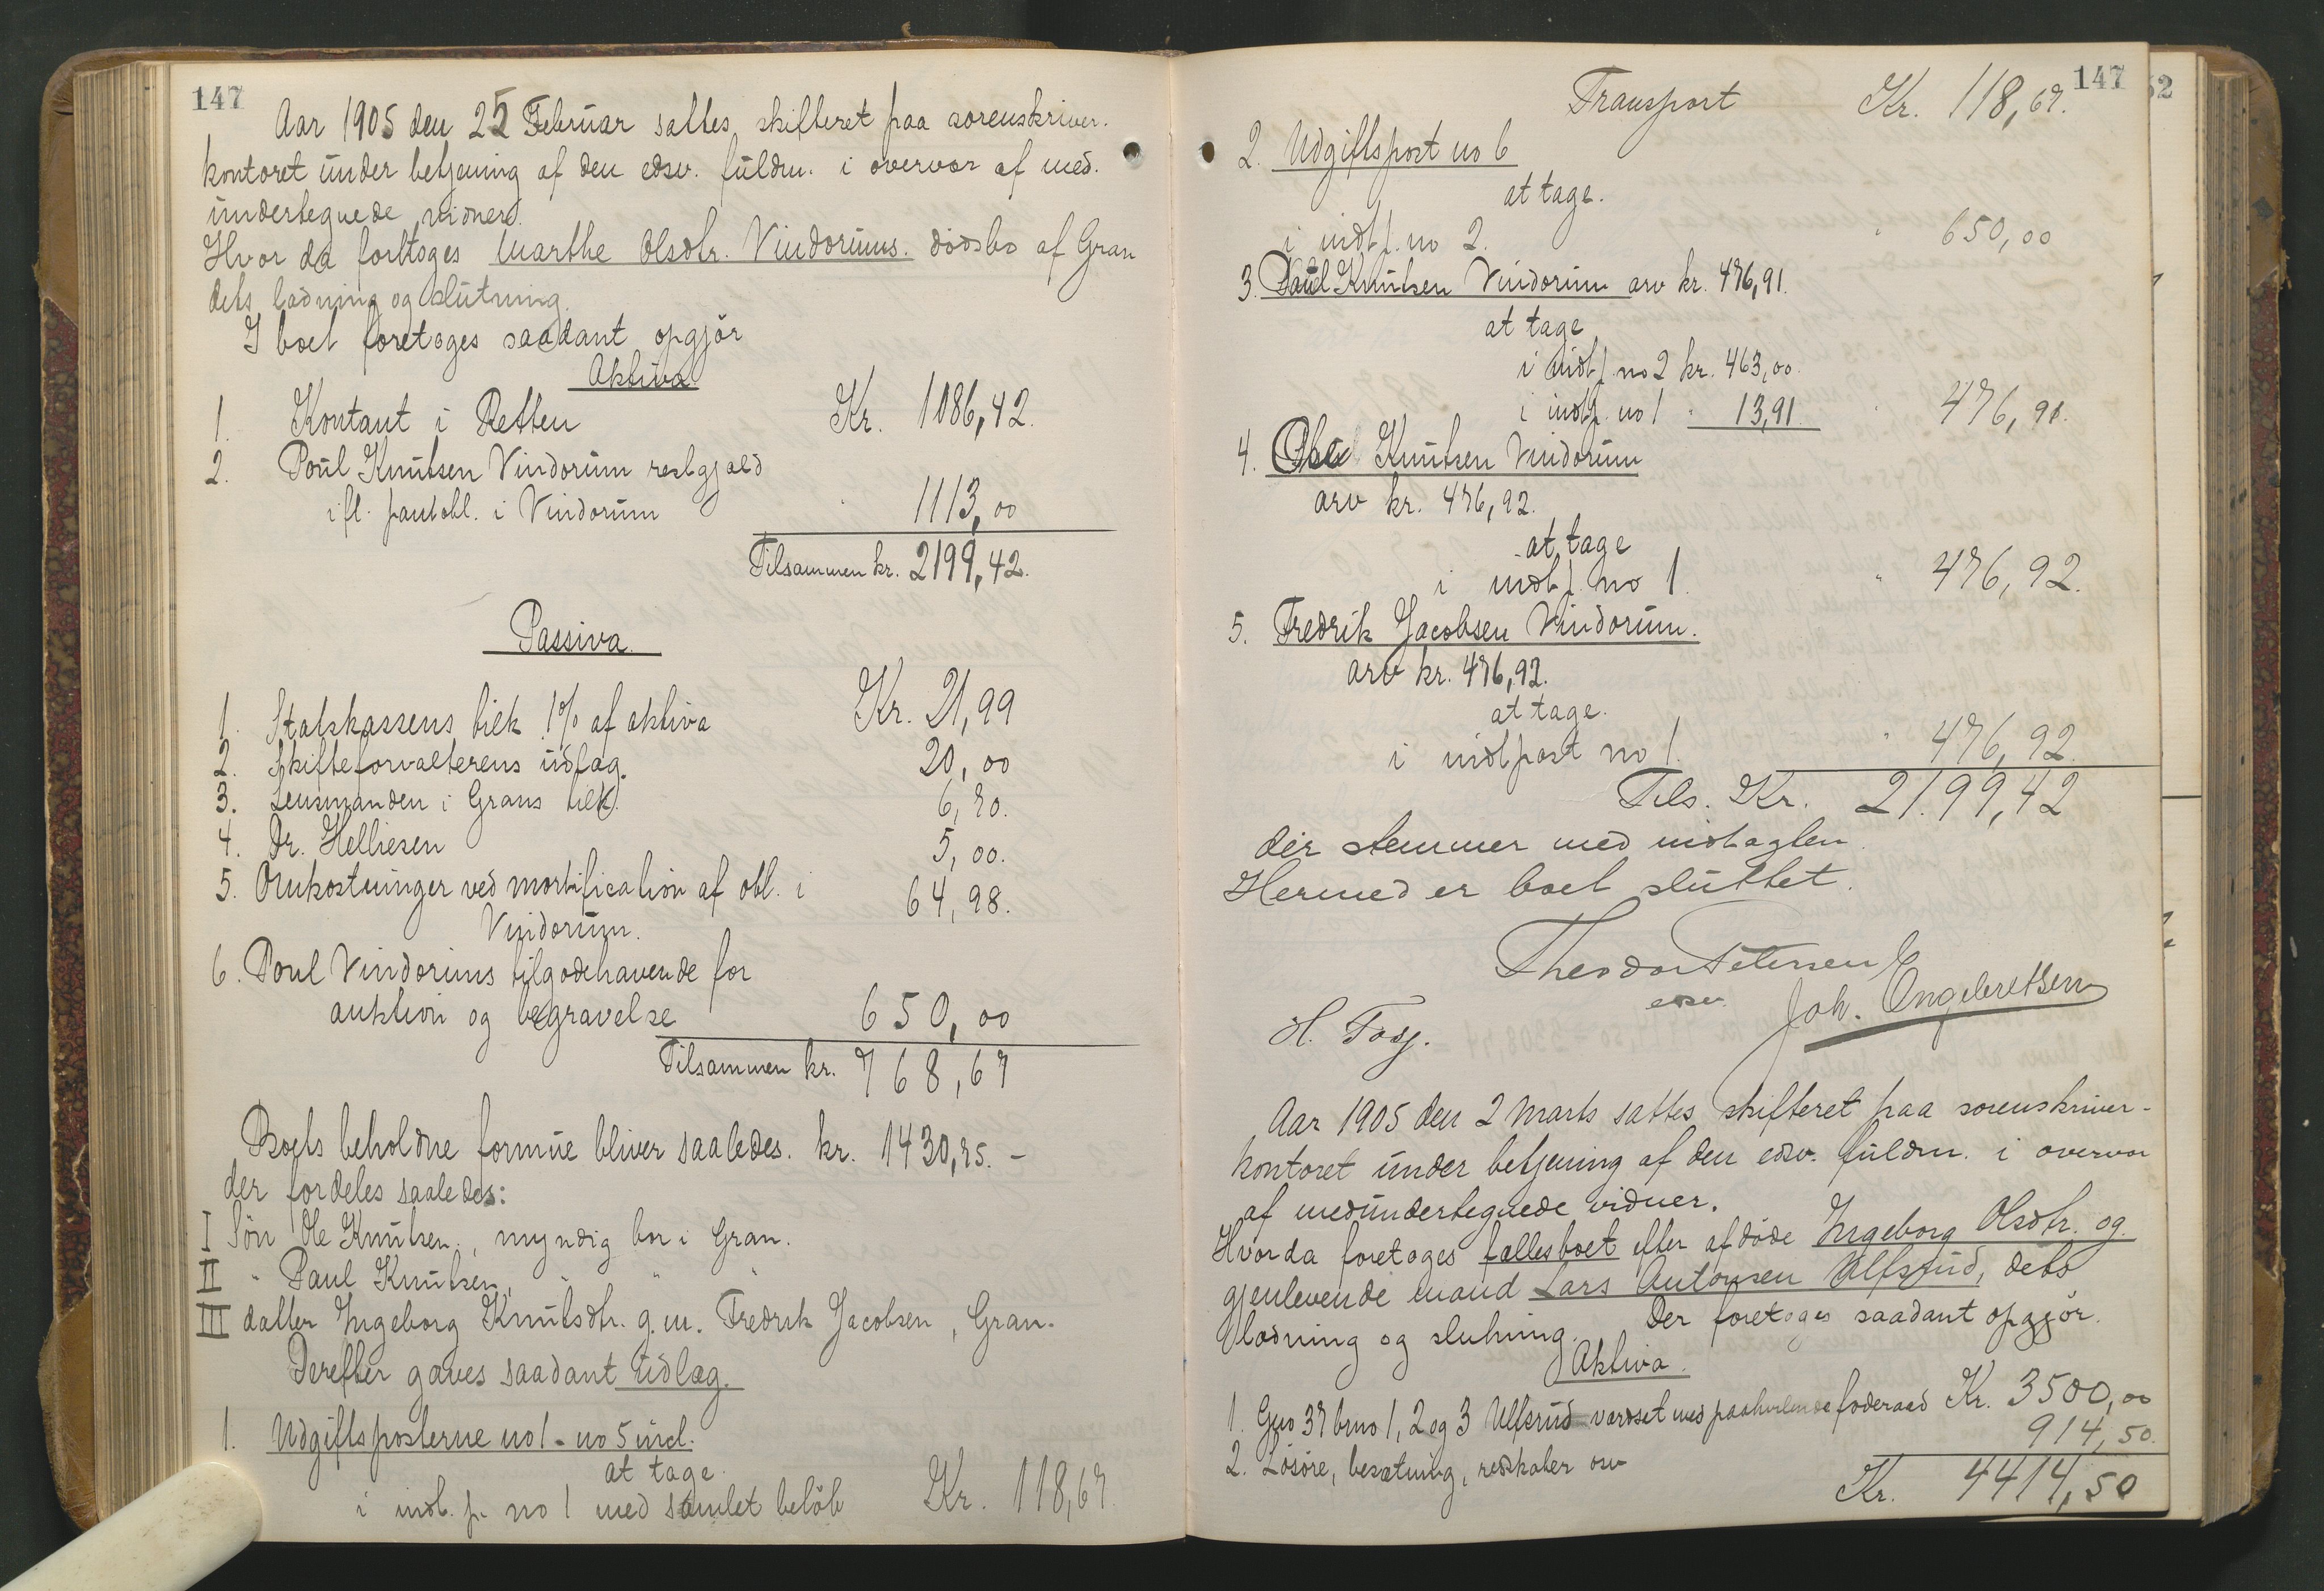 147
Aar 1905 den 25 Februar sattes skifteret paa sorenskriver-
kontoret under betjening af den edsv. fuldm. i overvær af med-
undertegnede vidner.
Hvor da foretoges Marthe Olsdtr. Vindorums. dödsbo af Gran
dets ladning og slutning.
I boet foretoges saadant opgjör
Aktiva
1. Kontant i Retten Kr. 1086,42.
2. Poul Knutsen Vindorum restgjæld
ifl. pantobl. i Vindorum " 1113,00
Tilsammen kr. 2199,42.
Passiva.
1. Statskassens tilk. 1% af aktiva Kr. 21,99
2. Skifteforvalterens udlæg. 20,00
3. Lensmanden i Grans tilk. 6,70.
4. Dr. Helliesen 5,00.
5. Omkostninger ved mortification af obl. i 64,98.
Vindorum.
6. Poul Vindorums tilgodehavende for
auktion og begravelse 650,00
Tilsammen kr. 768,67
Boets beholdne formue bliver saaledes. kr. 1430,75. -
der fordeles saaledes:
I Sön Ole Knutsen, myndig bor i Gran.
II " Paul Knutsen, " " "
III datter Ingeborg Knutsdtr. g. m. Fredrik Jacobsen, Gran.
Derefter gaves saadant Udlæg.
1. Udgiftsposterne no 1 - no 5 incl.
at tage.
i indt. p. no 1 med samlet belöb Kr. 118,67.
147
52
Transport Kr. 118,67.
2. Udgiftspost no 6
at tage.
i indt p. no 2. " 650,00
3. Paul Knutsen Vindorum arv kr. 476,91.
at tage
i indt p. no 2 kr. 463,00.
i indt p. no 1 " 13,91. " 476,91.
4. Ole Knutsen Vindorum
arv kr. 476,92.
at tage
i indt p. no 1. " 476,92.
5. Fredrik Jacobsen Vindorum.
arv kr. 476,92.
at tage.
i indtpost no 1. " 476,92.
Tils. Kr. 2199,42
der stemmer med indtægten.
Hermed er boet sluttet.
Theodor Petersen
edsv. Joh. Engebretsen
H. Foss.
Aar 1905 den 2 Marts sattes skifteret paa sorenskriver-
kontoret under betjening af den edsv. fuldm. i overvær
af medundertegnede vidner.
Hvor da foretoges fællesboet efter afdöde Ingeborg Olsdtr. og
gjenlevende mand Lars Antonsen Ulfsrud, dets
ladning og slutning. Der foretoges saadant opgjör.
Aktiva.
1. Gno 37 bruno 1, 2 og 3 Ulfsrud værdset med paahvilende föderaad Kr. 3500,00
2. Lösöre, besætning, redskaber osv 914,50.
Kr. 4414,50